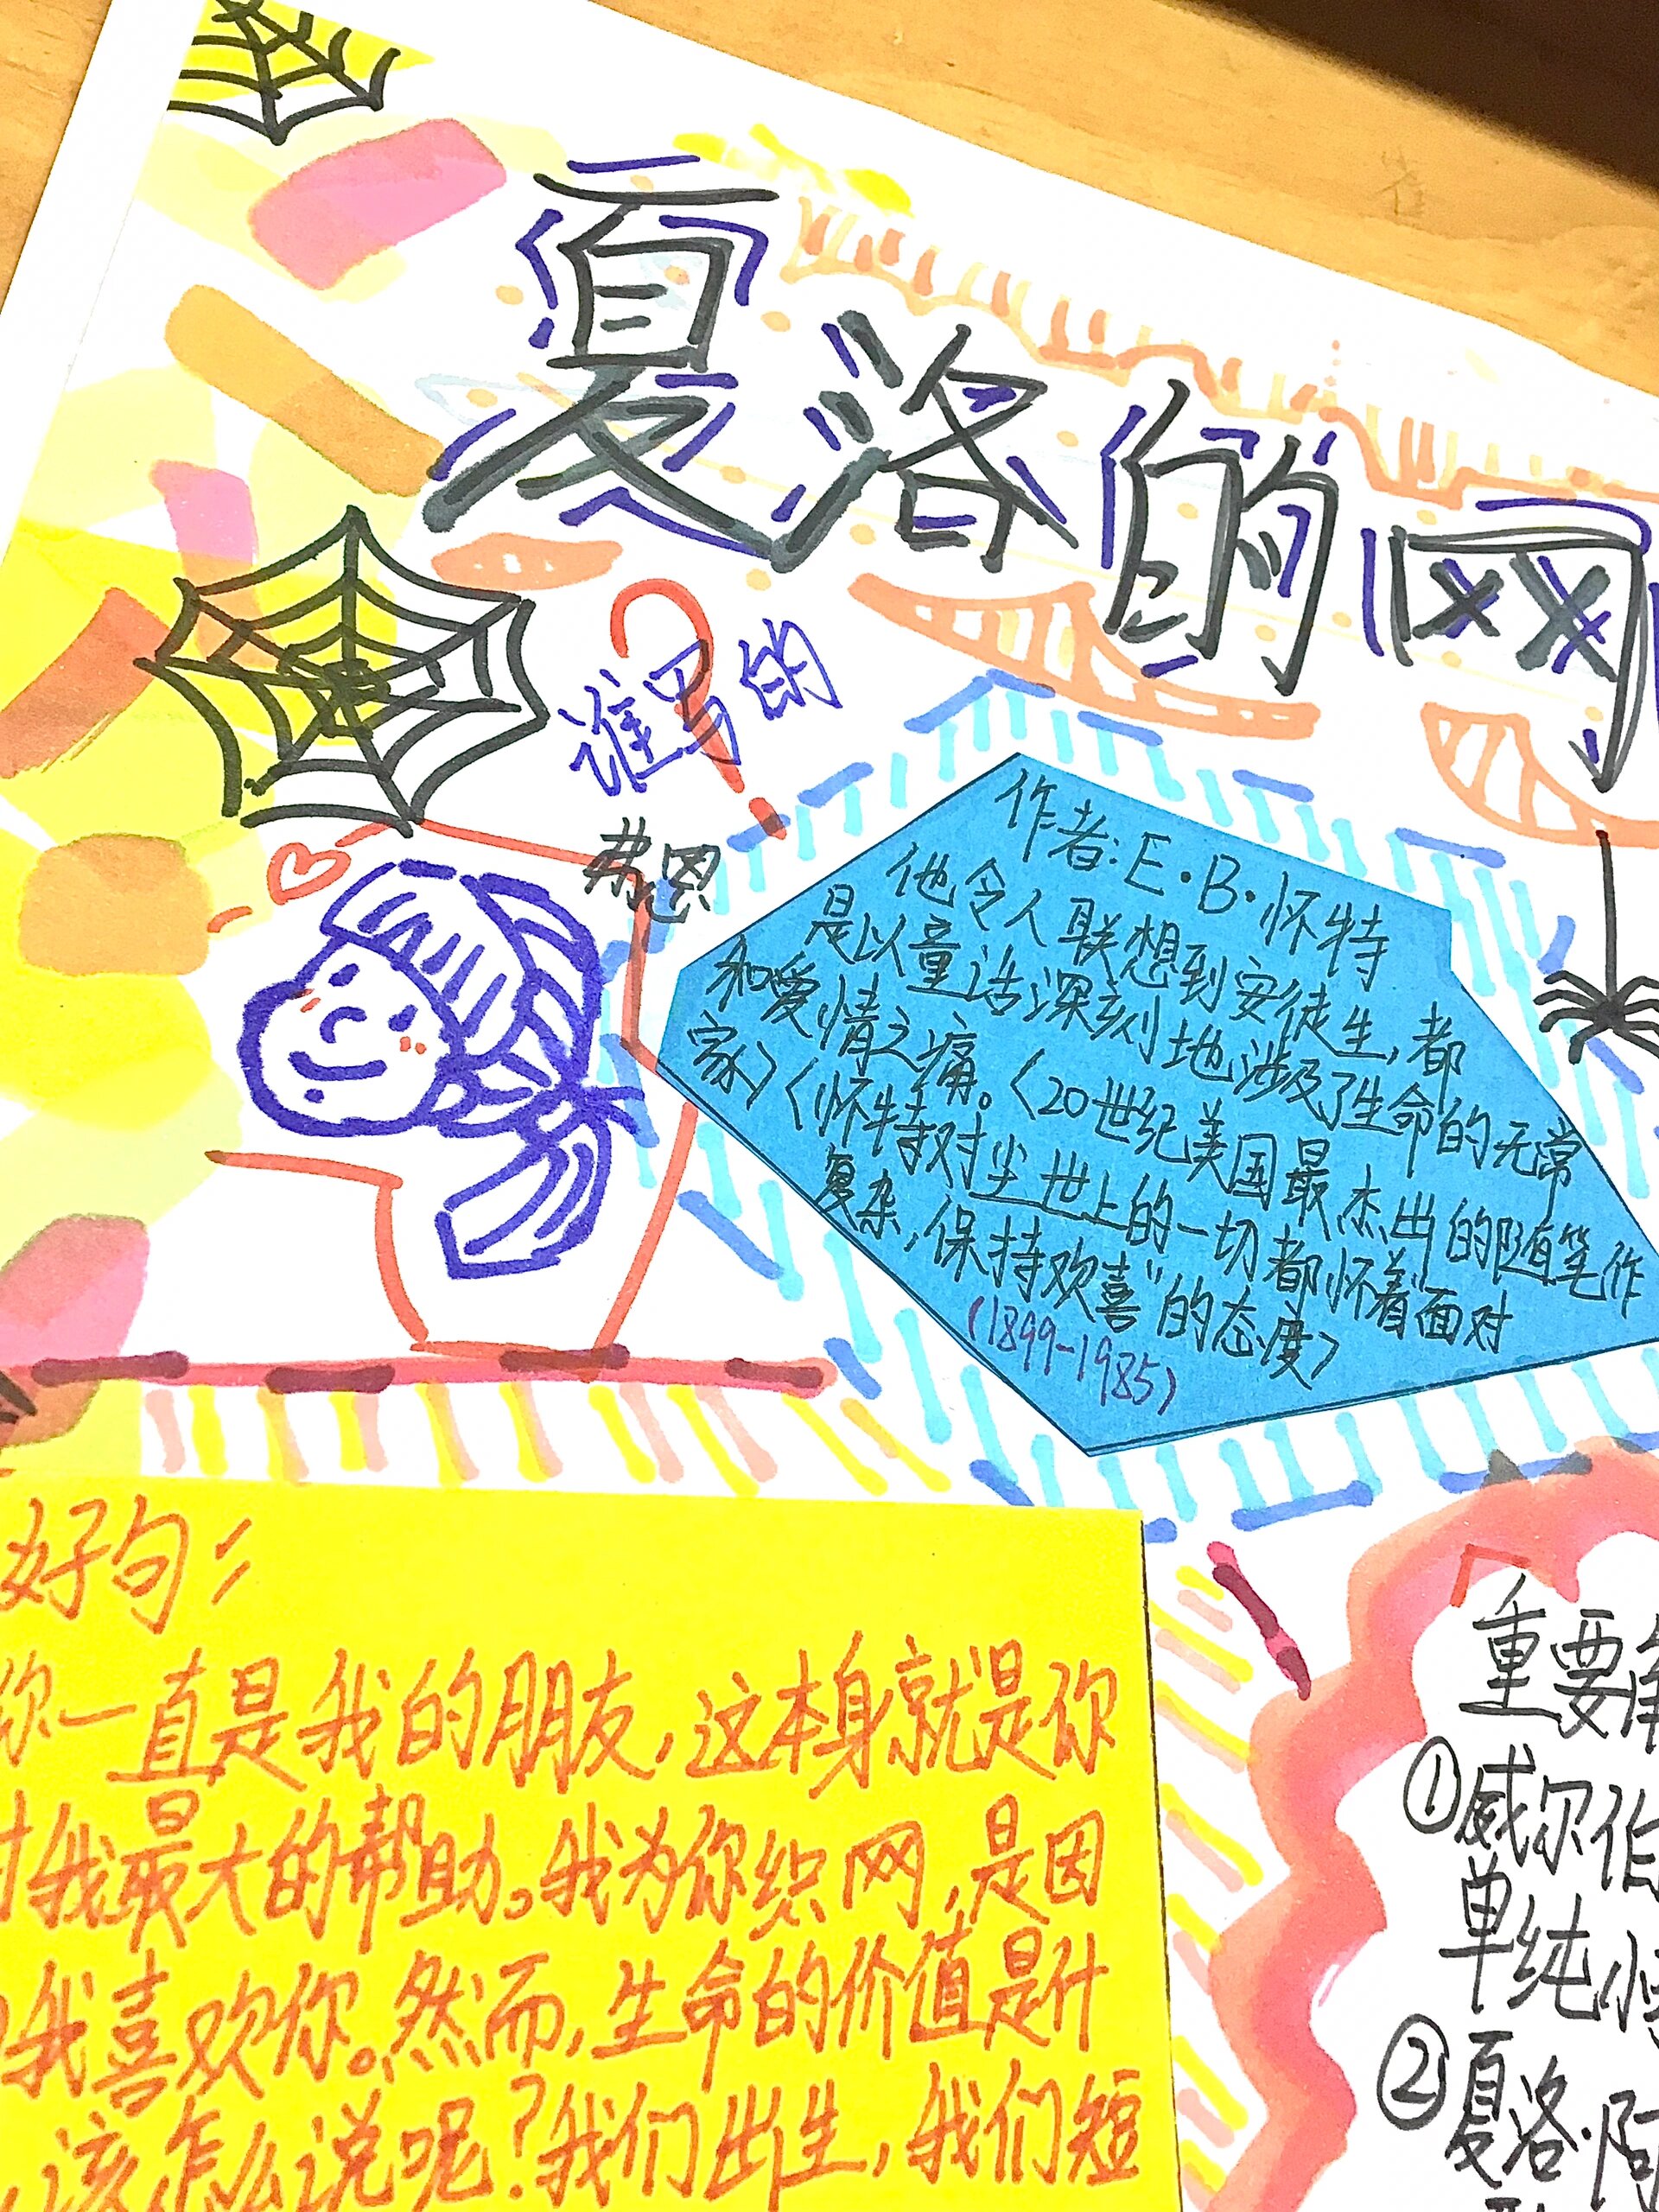 夏洛的网
谁写的
?
弗恩
作者:E·B·怀特
他令人联想到安徒生,都
是以童话深刻地涉及了生命的无常
和爱情之痛。〈20世纪美国最杰出的随笔作
家〉〈怀特对尘世上的一切都怀着面对
复杂,保持欢喜”的态度〉
(1899-1985)
好句:
你一直是我的朋友,这本身就是你
对我最大的帮助。我为你织网,是因
我喜欢你。然而,生命的价值是什
,该怎么说呢?我们出生,我们短
重要角
①威尔伯
单纯
②夏洛·阿